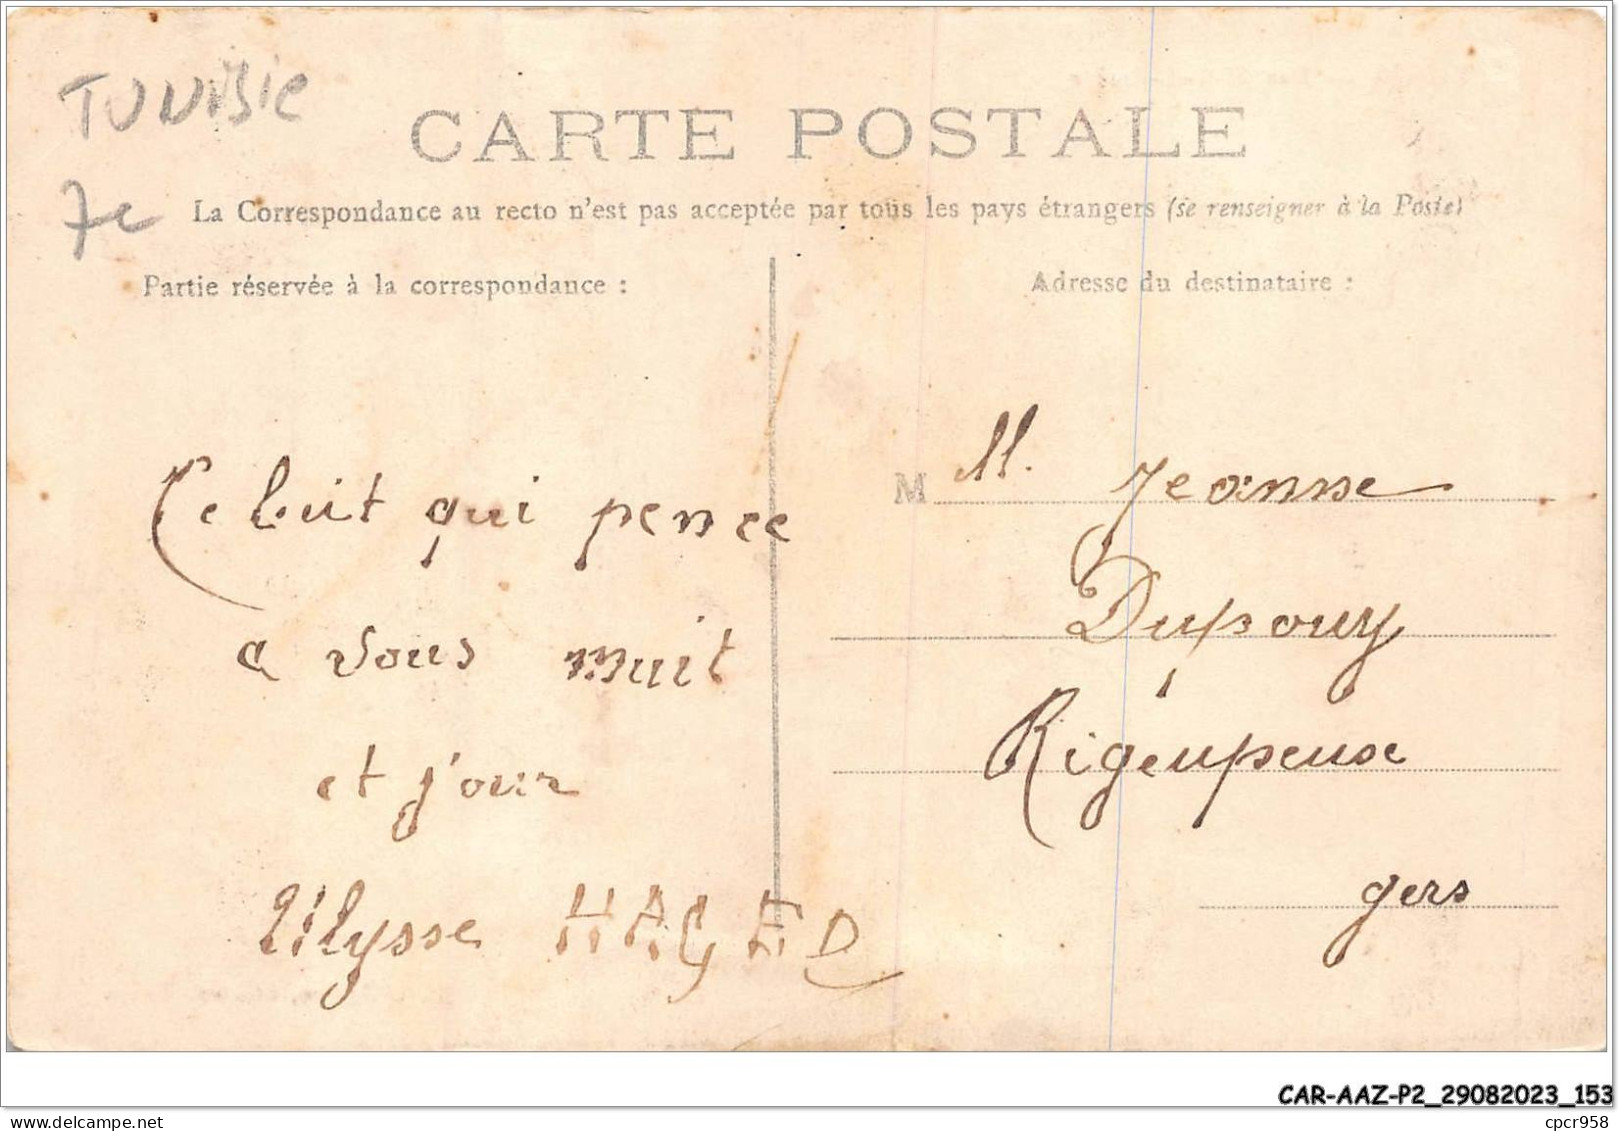 Tunisie
CARTE POSTALE
7e
La Correspondance au recto n'est pas acceptée par tous les pays étrangers (se renseigner à la Poste)
Partie réservée à la correspondance :
Adresse du destinataire :
Celuit qui pence
a vous nuit
et j'our
Ulysse HAGED
M M. Jeanne
Dupouy
Rigeupeuse
gers
CAR-AAZ-P2_29082023_153
cpcr958